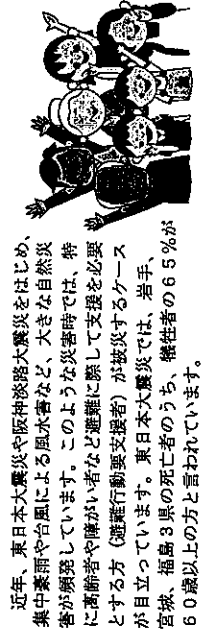 近年、東日本大震災や阪神淡路大震災をはじめ、
集中豪雨や台風による風水害など、大きな自然災
害が頻発しています。このような災害時では、特
に高齢者や障がい者など避難に際して支援を必要
とする方（避難行動要支援者）が被災するケース
が目立っています。東日本大震災では、岩手、
宮城、福島３県の死亡者のうち、犠牲者の６５％が
６０歳以上の方と言われています。